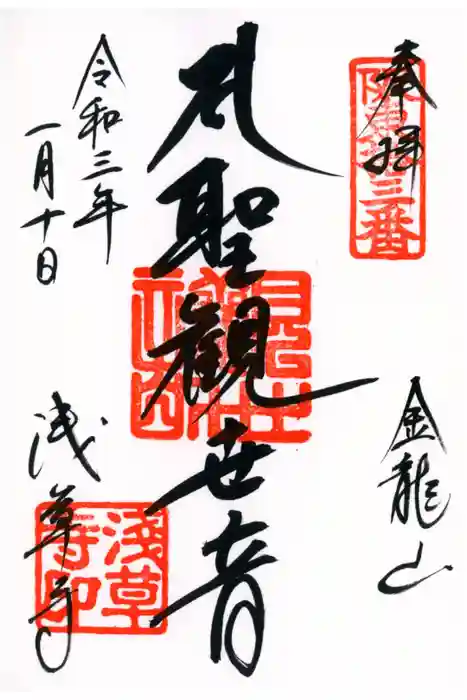 奉拝
坂東十三番
金龍山
聖観世音
令和三年
一月十日
浅草寺
淺草寺印